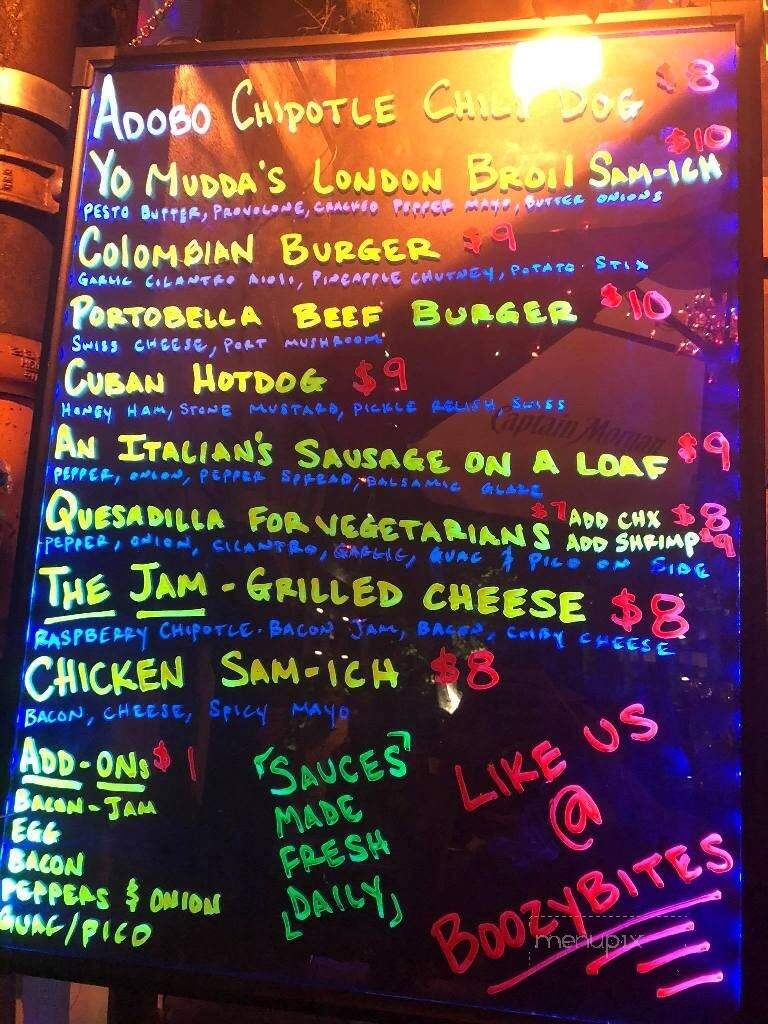 ADOBO CHIPOTLE CHILI DOG $8
YO MUDDA'S LONDON BROIL SAM-ICH $10
PESTO BUTTER, PROVOLONE, CRACKED PEPPER MAYO, BUTTER ONIONS
COLOMBIAN BURGER $9
GARLIC CILANTRO AIOLI, PINEAPPLE CHUTNEY, POTATO STIX
PORTOBELLA BEEF BURGER $10
SWISS CHEESE, PORT MUSHROOM
CUBAN HOTDOG $9
HONEY HAM, STONE MUSTARD, PICKLE RELISH, SWISS
Captain Morgan
AN ITALIAN'S SAUSAGE ON A LOAF $9
PEPPER, ONION, PEPPER SPREAD, BALSAMIC GLAZE
QUESADILLA FOR VEGETARIANS $7 ADD CHX $8
ADD SHRIMP $9
PEPPER, ONION, CILANTRO, GARLIC, GUAC & PICO ON SIDE
THE JAM - GRILLED CHEESE $8
RASPBERRY CHIPOTLE-BACON JAM, BACON, COLBY CHEESE
CHICKEN SAM-ICH $8
BACON, CHEESE, SPICY MAYO
ADD-ONS $1
BACON-JAM
EGG
BACON
PEPPERS & ONION
GUAC/PICO
"SAUCES
MADE
FRESH
DAILY"
LIKE US
@
BOOZYBITES
menupix